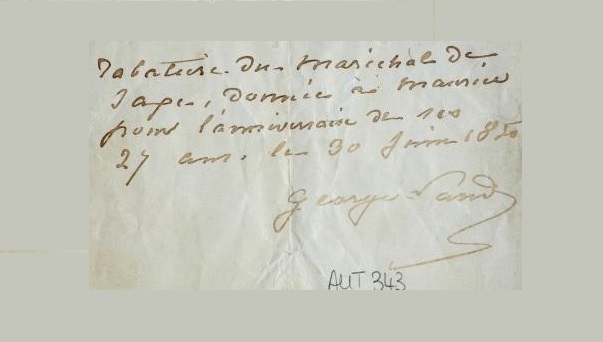 Tabatière du maréchal de
Saxe, donnée à maurice
pour l'anniversaire de ses
27 ans. le 30 Juin 1850
George Sand
AUT 343